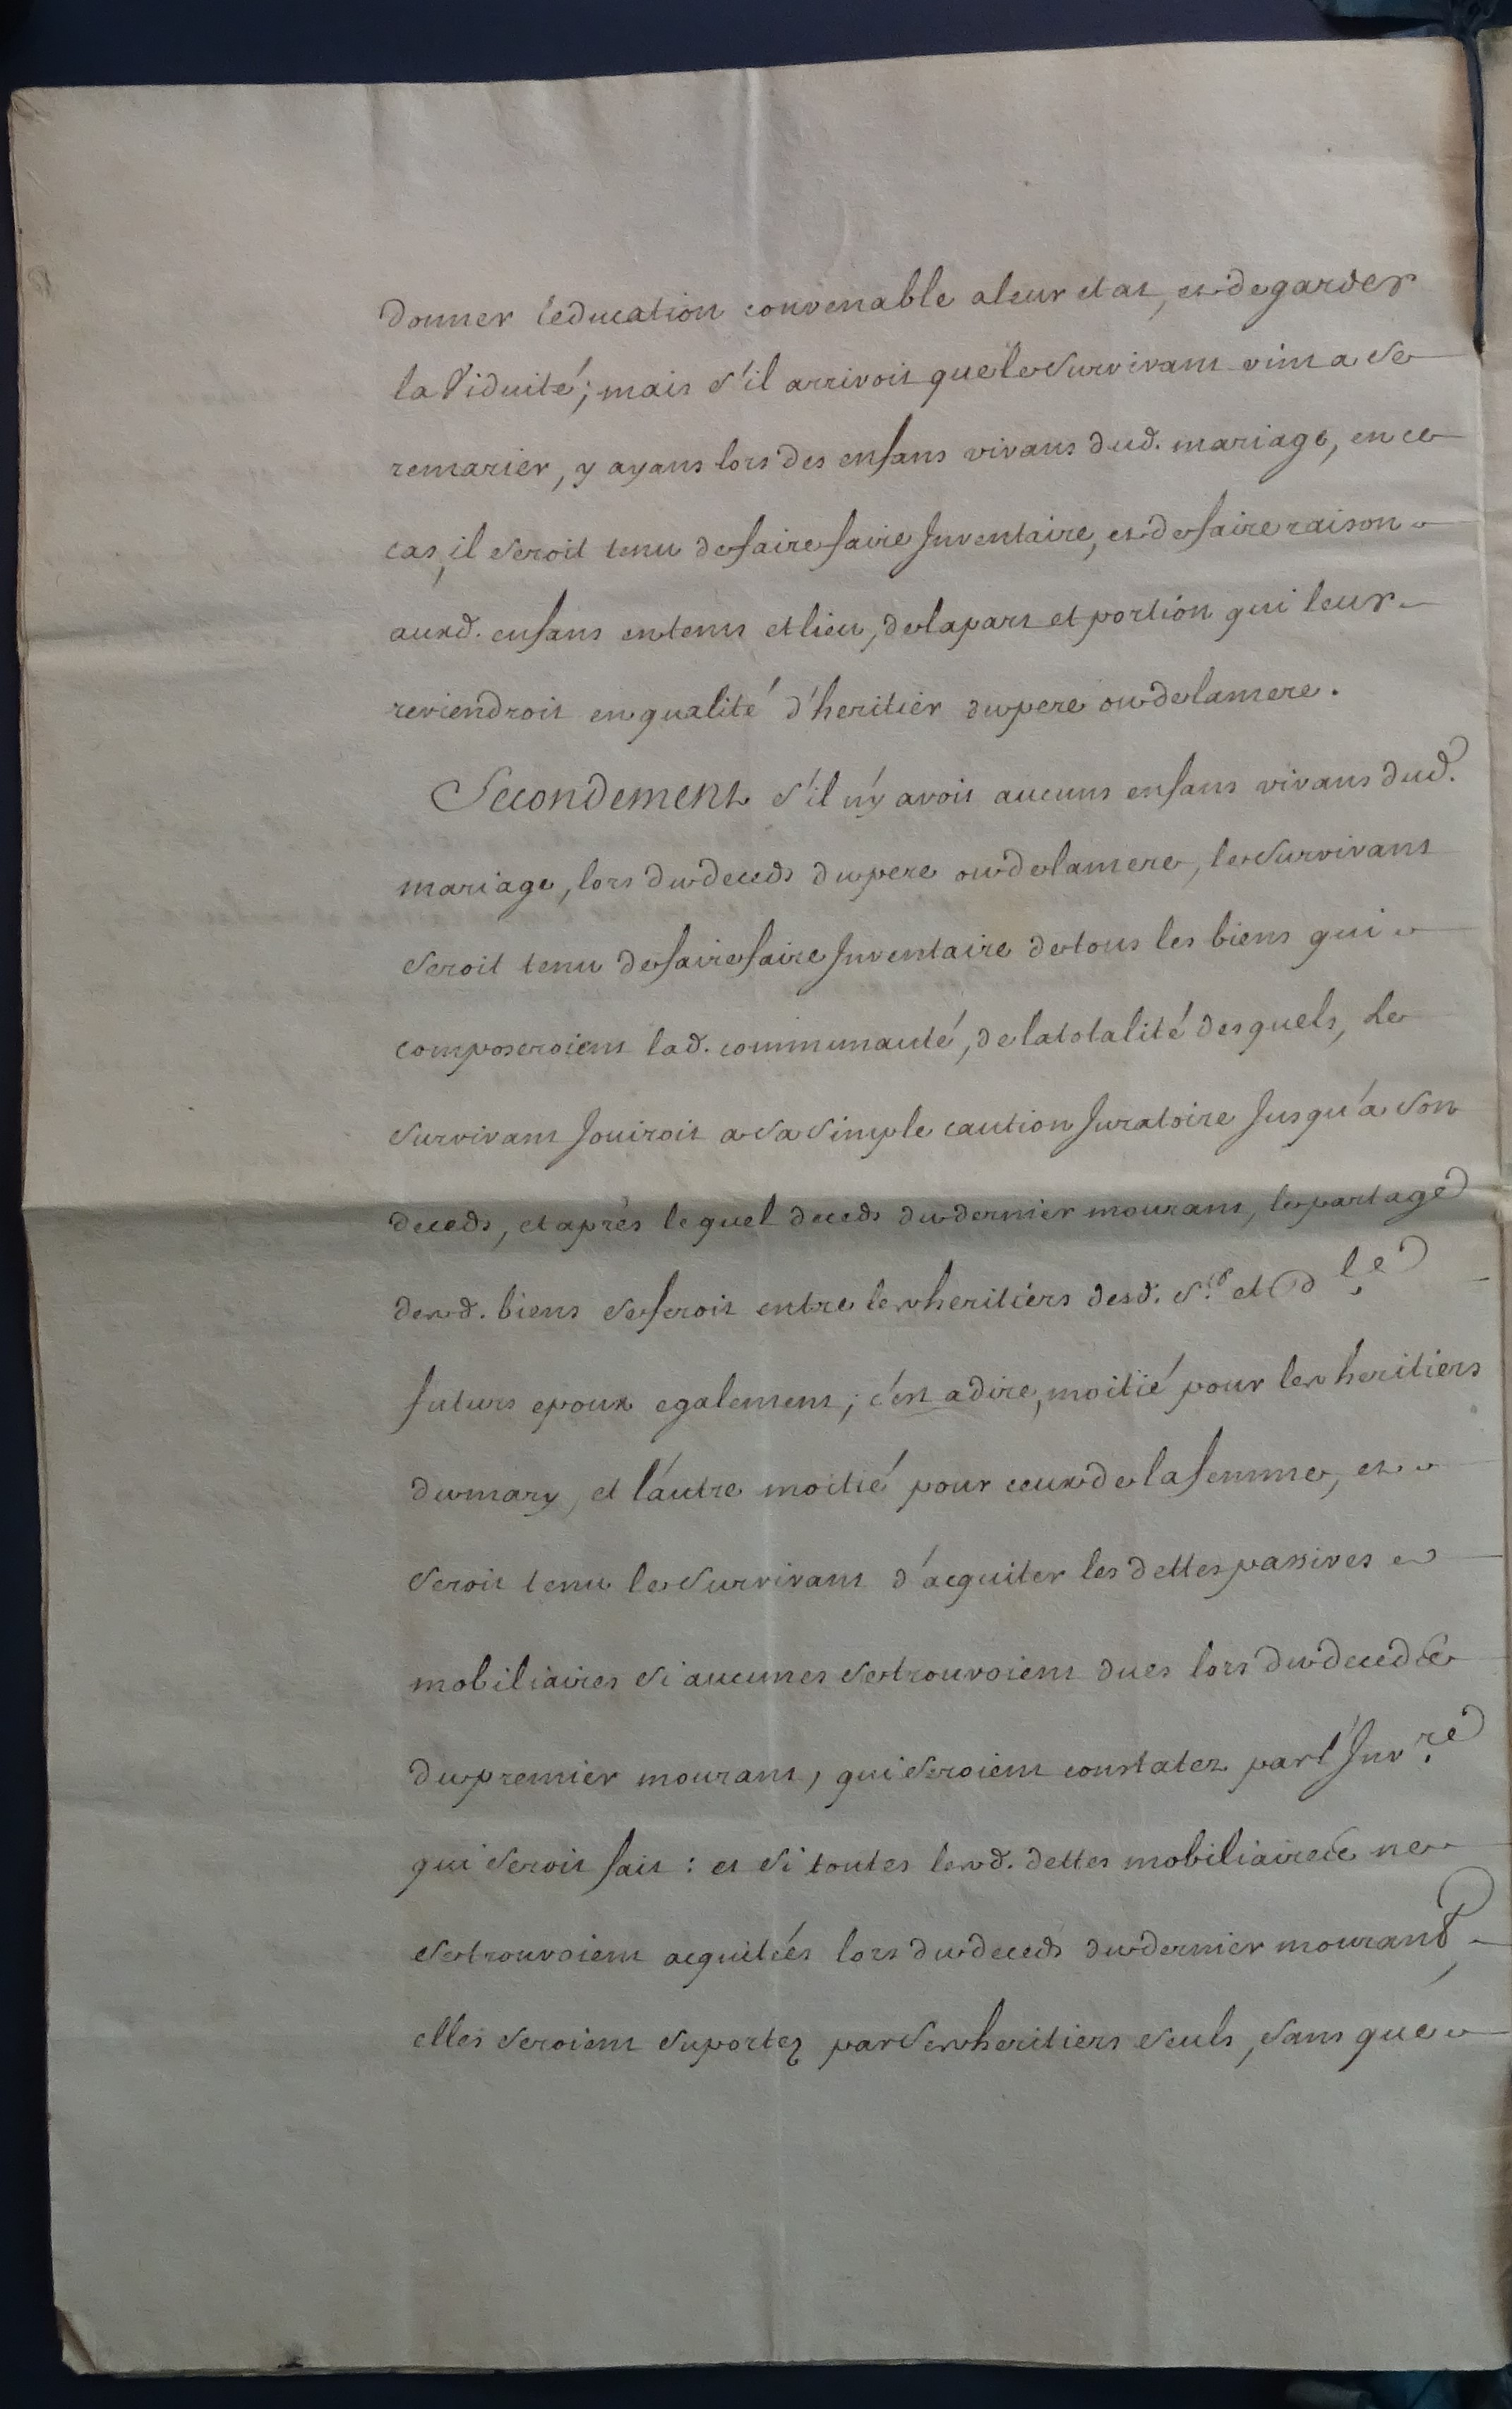 donner l'education convenable a leur etat, et de garder
la Viduité; mais s'il arrivoit que le survivant vint a se
remarier, y ayant lors des enfans vivans dud. mariage, en ce
cas, il seroit tenu de faire faire Inventaire, et de faire raison
auxd. enfans en tems et lieu, de la part et portion qui leur
reviendroit en qualité d'heritier du pere ou de la mere.
Secondement s'il n'y avoit aucuns enfans vivans dud.
mariage, lors du deceds du pere ou de la mere, le survivant
seroit tenu de faire faire Inventaire de tous les biens qui
composeroient lad. communauté, de la totalité desquels, le
survivant Jouiroit a sa simple caution Juratoire Jusqu'a son
deceds, et après lequel deceds du dernier mourant, le partage
desd. biens se feroit entre les heritiers desd. Sr. et Dlle
futurs epoux egalement; c'est a dire, moitié pour les heritiers
du mary, et l'autre moitié pour ceux de la femme, et
seroit tenu le survivant d'acquiter les dettes passives
mobiliaires si aucunes se trouvoient dues lors du deceds
du premier mourant, qui seroient constatez par l'Invre
qui seroit fait: et si toutes lesd. dettes mobiliaires ne
se trouvoient acquitées lors du deceds du dernier mourant,
elles seroient suportez par ses heritiers seuls, sans que